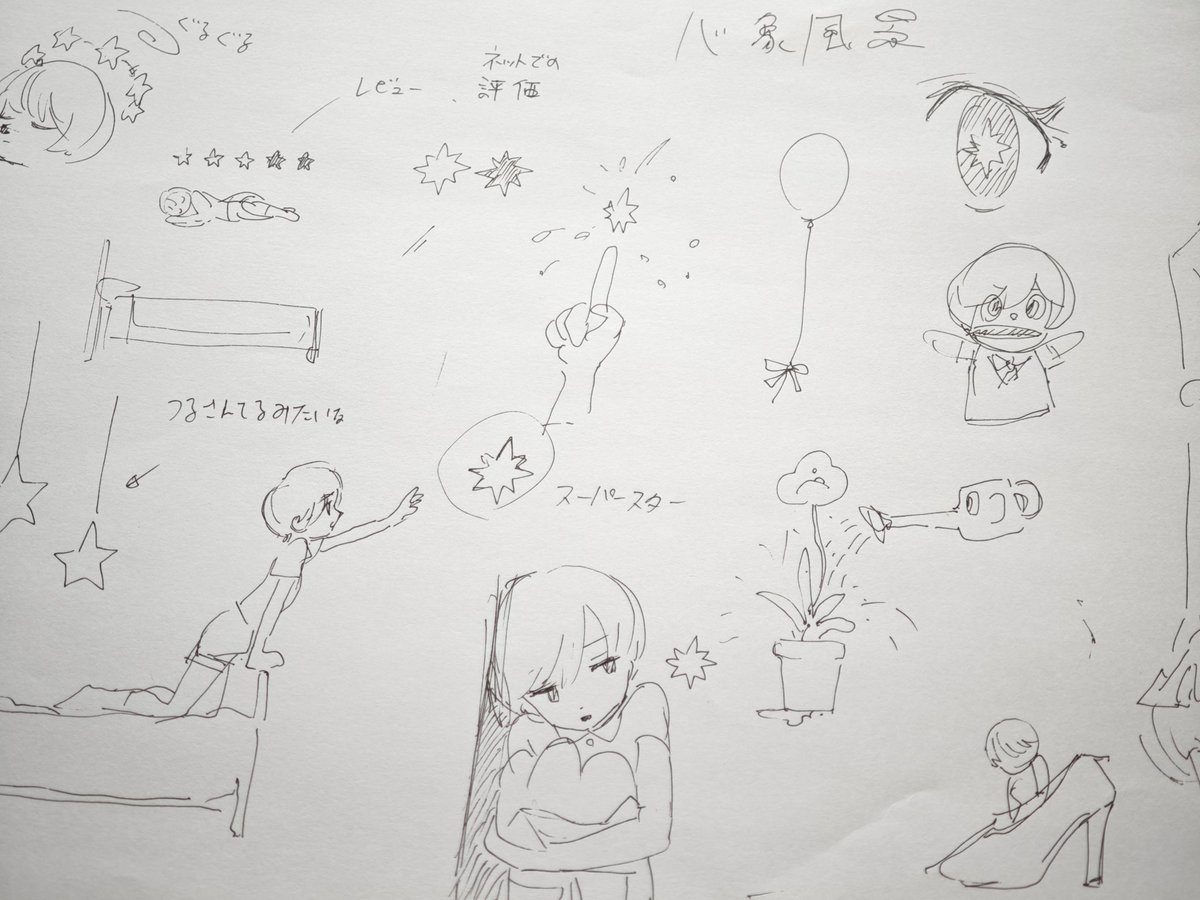 ぐるぐる
心象風景
ネットでの
レビュー、評価
つるさんてるみたいな
スーパースター